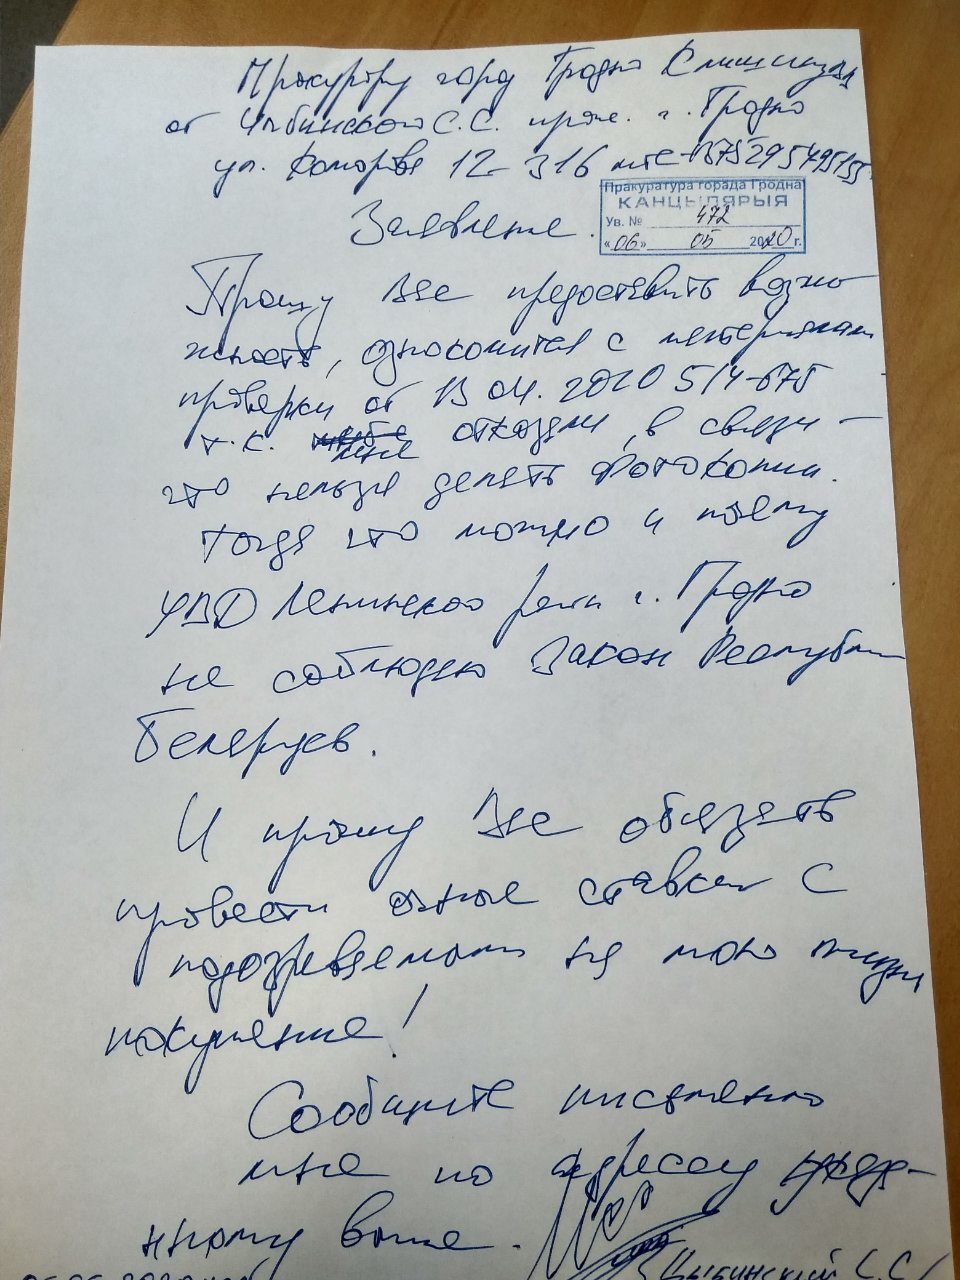 Прокурору город Гродно
от Цыбинского С.С. прож. г. Гродно
ул. 12-316 мтс +375295495155
Пракуратура горада Гродна
КАНЦЫЛЯРЫЯ
Ув. № 472
«06» 05 2020 г.
Заявление.
Прошу Вас предоставить возмо
жность, ознокомится с материялами
проверки от 13 04. 2020 514-675
т.к. мне откозали, в связи
что нельзя делать Фотокопии.
Тогда что можно и почему
УВД Ленинского рети г. Гродно
не соблюдаю Закон Республики
Беларусь.
И прошу Вас обязать
провести очные ставки с
подозреваемыми на мою жизни
покушение!
Сообщите письменно
мне по адресу указа-
нному выше.
Цыбинский С.С.